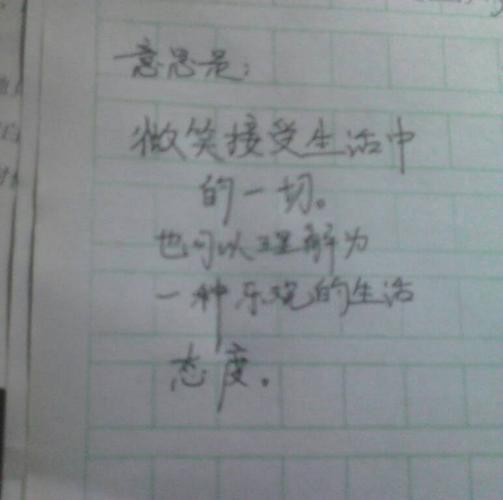 意思是：
微笑接受生活中
的一切。
也可以理解为
一种乐观的生活
态度。